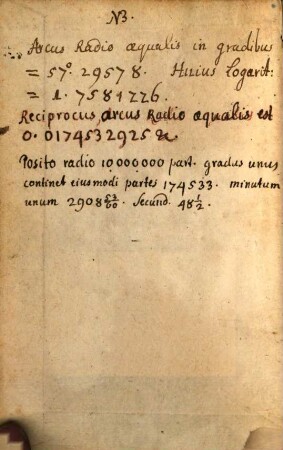 N3.
Arcus Radio æqualis in gradibus
= 57°. 29578. Huius logarit:
= 1. 7581226.
Reciprocus arcus Radio æqualis est
0. 0174532925 &c
Posito radio 10,000,000 part. gradus unus
continet eiusmodi partes 174533. minutum
unum 2908 53/60. Secund. 48 1/2.